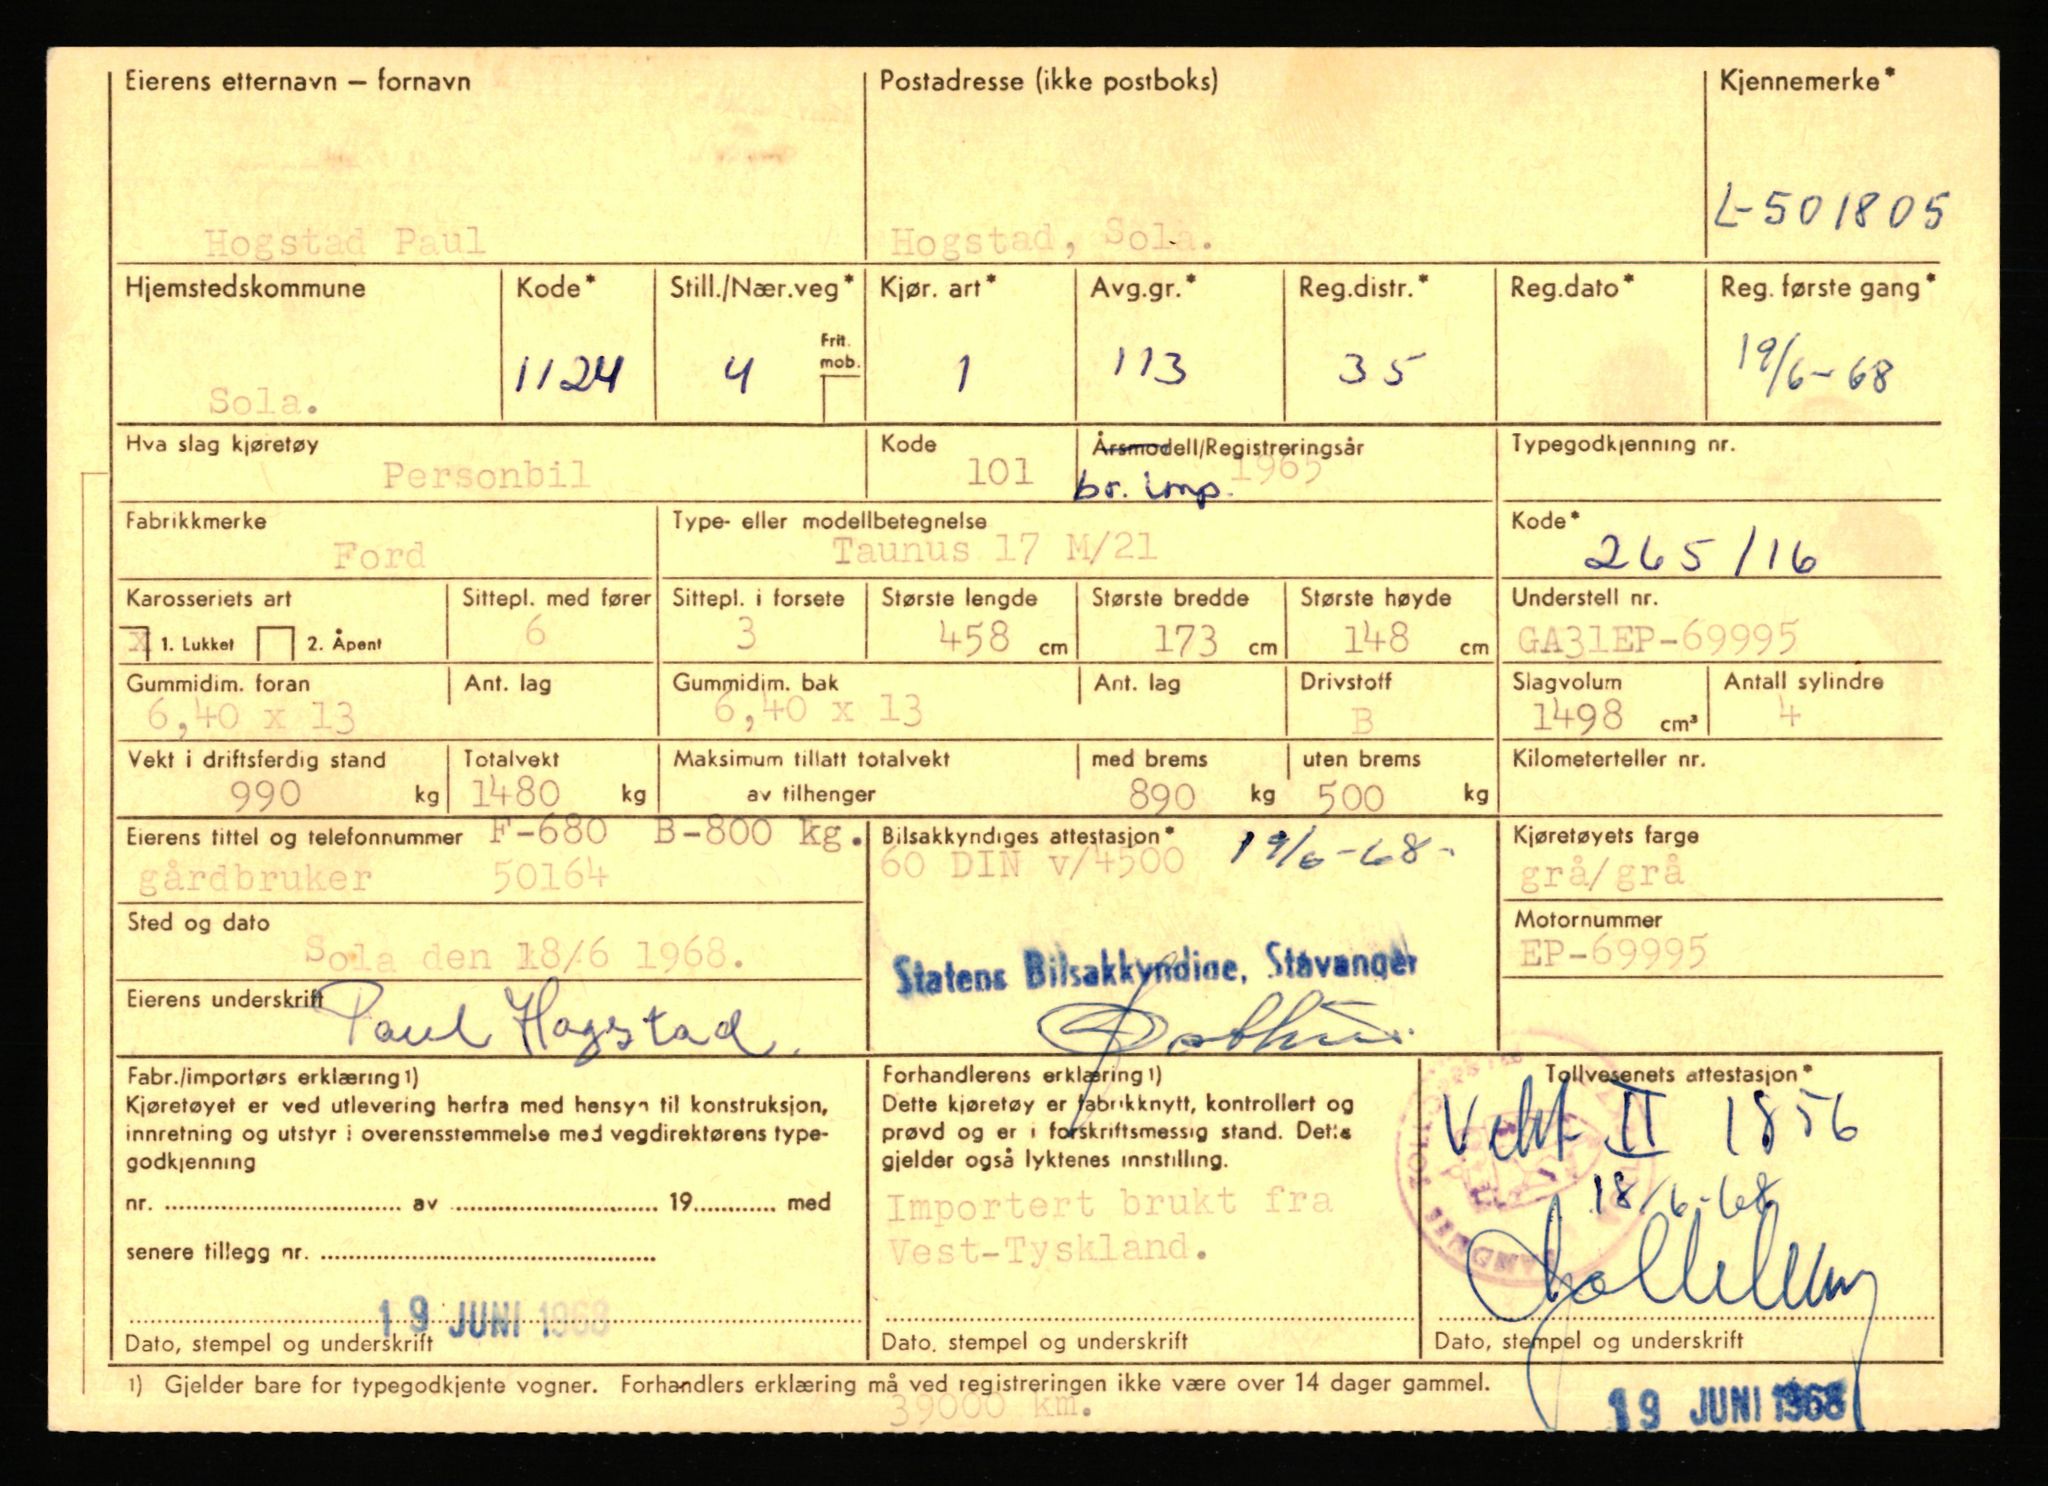 Eierens etternavn — fornavn
Postadresse (ikke postboks)
Kjennemerke*
L-501805
Hogstad Paul
Hogstad, Sola.
Hjemstedskommune
Kode*
Still./Nær.veg*
Kjør. art*
Avg.gr.*
Reg.distr.*
Reg.dato*
Reg. første gang*
Frit. mob.
Sola.
1124
4
1
113
35
19/6-68
Hva slag kjøretøy
Kode
Årsmodell/Registreringsår
Typegodkjenning nr.
Personbil
101
br. imp.
1965
Fabrikkmerke
Type- eller modellbetegnelse
Kode*
Ford
Taunus 17 M/21
265/16
Karosseriets art
Sittepl. med fører
Sittepl. i forsete
Største lengde
Største bredde
Største høyde
Understell nr.
x 1. Lukket 2. Åpent
6
3
458 cm
173 cm
148 cm
GA31EP-69995
Gummidim. foran
Ant. lag
Gummidim. bak
Ant. lag
Drivstoff
Slagvolum
Antall sylindre
6,40 x 13
6,40 x 13
B
1498 cm³
4
Vekt i driftsferdig stand
Totalvekt
Maksimum tillatt totalvekt
av tilhenger
med brems
uten brems
Kilometerteller nr.
990 kg
1480 kg
890 kg
500 kg
Eierens tittel og telefonnummer
F-680 B-800 kg.
gårdbruker 50164
Bilsakkyndiges attestasjon*
60 DIN v/4500
19/6-68-
Kjøretøyets farge
grå/grå
Sted og dato
Sola den 18/6 1968.
Statens Bilsakkyndige, Stavanger
Motornummer
EP-69995
Eierens underskrift
Paul Hogstad.
Fabr./importørs erklæring1)
Kjøretøyet er ved utlevering herfra med hensyn til konstruksjon,
innretning og utstyr i overensstemmelse med vegdirektørens type-
godkjenning
nr. ............ av ............ 19...... med
senere tillegg nr. ............
19 JUNI 1968
Dato, stempel og underskrift
Forhandlerens erklæring1)
Dette kjøretøy er fabrikknytt, kontrollert og
prøvd og er i forskriftsmessig stand. Dette
gjelder også lyktenes innstilling.
Importert brukt fra
Vest-Tyskland.
Dato, stempel og underskrift
Tollvesenets attestasjon*
Vekt II 1856
18/6-68
Dato, stempel og underskrift
1) Gjelder bare for typegodkjente vogner. Forhandlers erklæring må ved registreringen ikke være over 14 dager gammel.
39000 km.
19 JUNI 1968